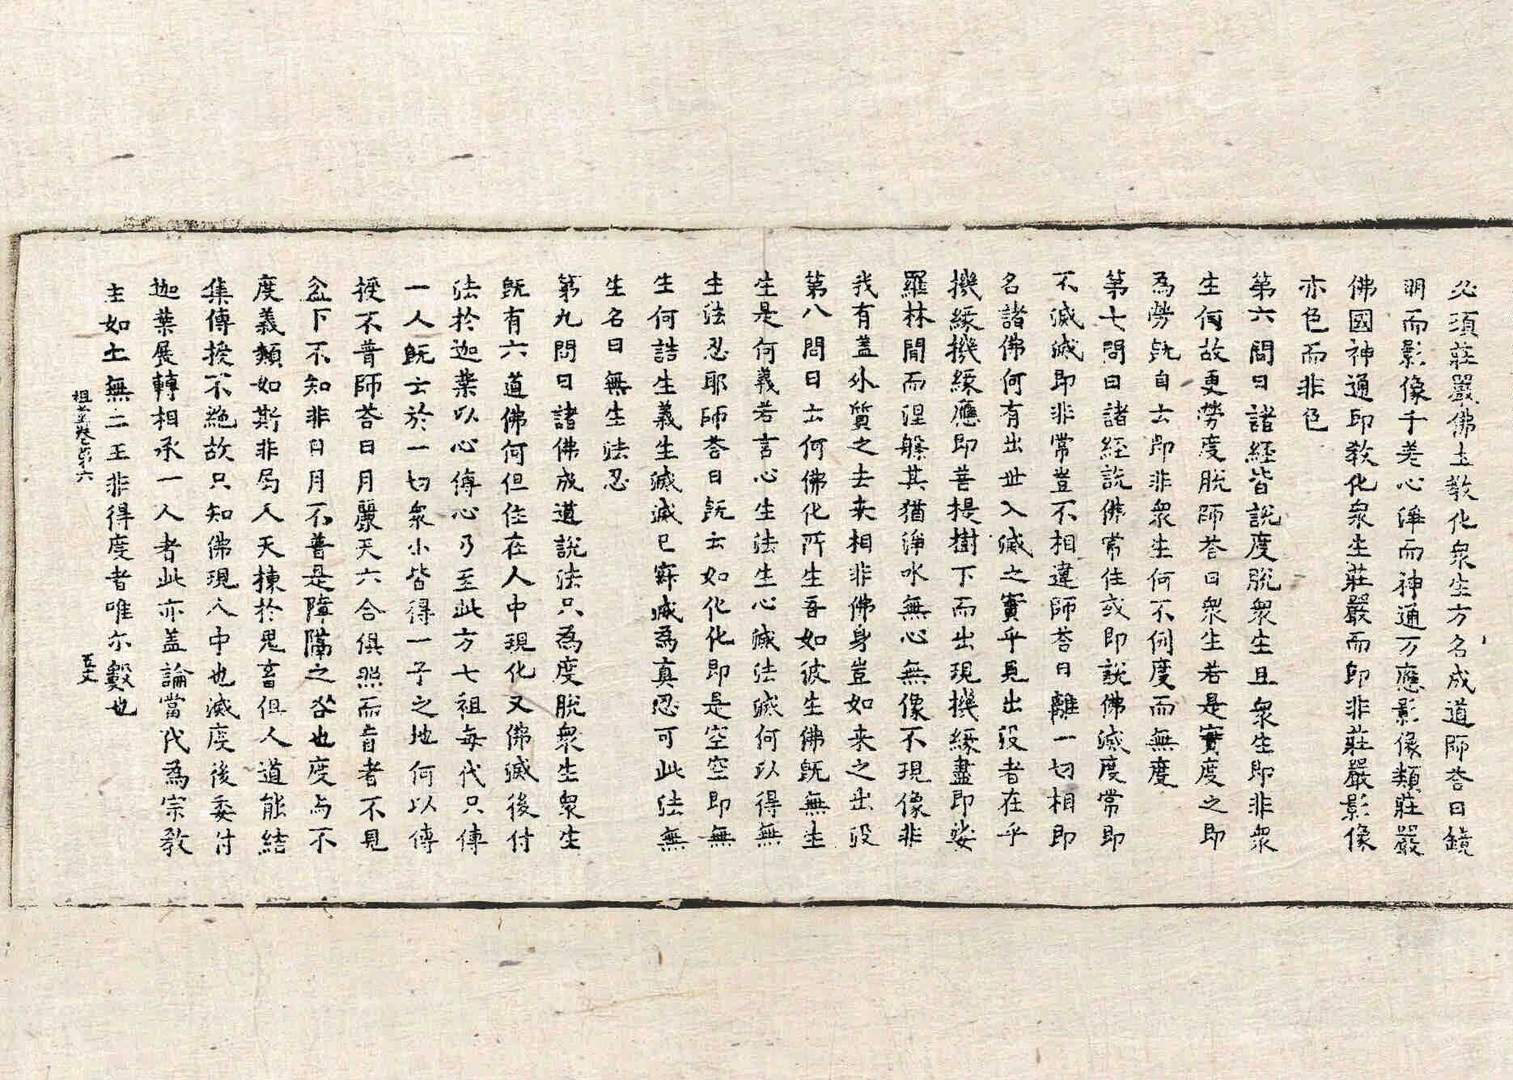 必須莊嚴佛土教化衆生方名成道師荅曰鏡
明而影像千差心淨而神通万應影像類莊嚴
佛國神通即教化衆生莊嚴而即非莊嚴影像
亦色而非色
第六問曰諸經皆說度脫衆生且衆生即非衆
生何故更勞度脫師荅曰衆生若是實度之即
為勞旣自云即非衆生何不例度而無度
第七問曰諸經說佛常住或即說佛滅度常即
不滅滅即非常豈不相違師荅曰離一切相即
名諸佛何有出世入滅之實乎見出沒者在乎
機緣機緣應即菩提樹下而出現機緣盡即娑
羅林間而涅槃其猶淨水無心無像不現像非
我有盖外質之去來相非佛身豈如來之出沒
第八問曰云何佛化所生吾如彼生佛旣無生
生是何義若言心生法生心滅法滅何以得無
生法忍耶師荅曰旣云如化化即是空空即無
生何詰生義生滅滅已寂滅為真忍可此法無
生名曰無生法忍
第九問曰諸佛成道說法只為度脫衆生衆生
旣有六道佛何但住在人中現化又佛滅後付
法於迦葉以心傳心乃至此方七祖每代只傳
一人旣云於一切衆小皆得一子之地何以傳
授不普師荅曰日月麗天六合俱照而盲者不見
盆下不知非日月不普是障隔之咎也度与不
度義類如斯非局人天揀於鬼畜但人道能結
集傳授不絶故只知佛現人中也滅度後委付
迦葉展轉相承一人者此亦盖論當代為宗教
主如土無二王非得度者唯尒數也
祖堂卷第六
五丈